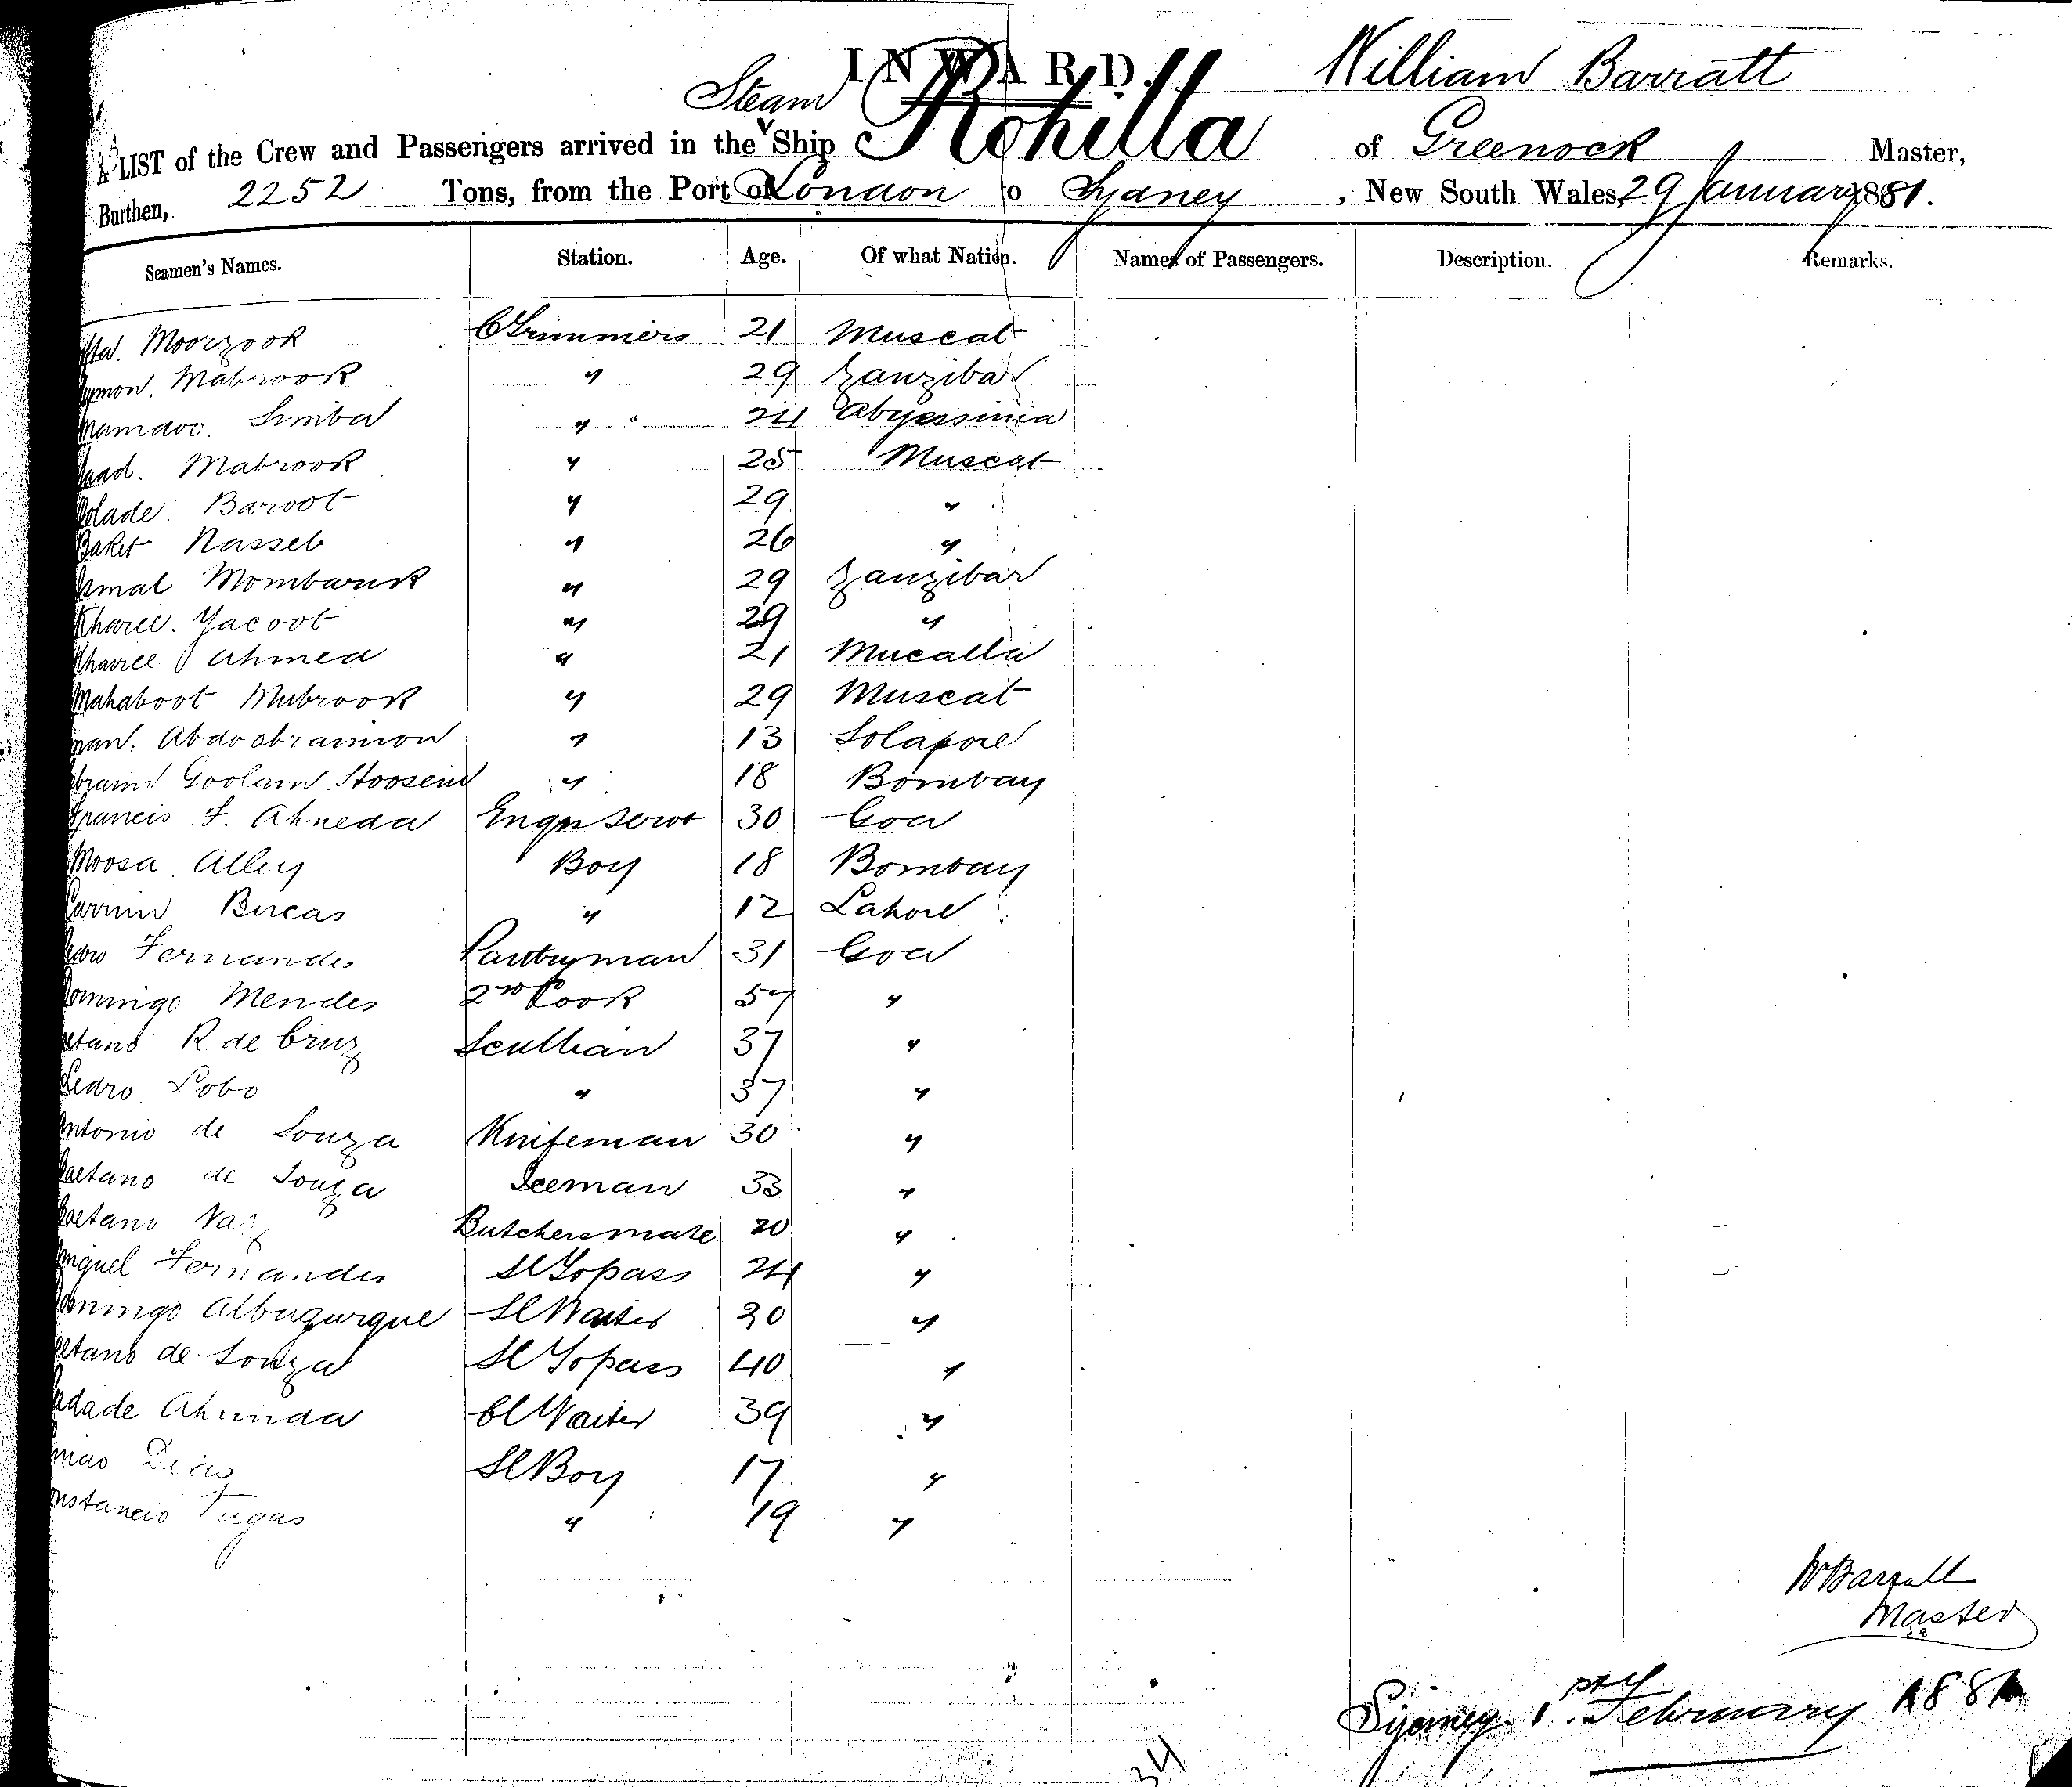 INWARD.
William Barratt
Steam
A LIST of the Crew and Passengers arrived in the Ship Rohilla of Greenock Master,
Burthen, 2252 Tons, from the Port of London to Sydney, New South Wales, 29 January 1881.
Seamen's Names. Station. Age. Of what Nation. Names of Passengers. Description. Remarks.
Moorzook C Trimmers 21 Muscat
Mabrook " 29 Zanzibar
Simba " 24 Abyessinia
Mabrook " 25 Muscat
Baroot " 29 "
Baket Nasseb " 26 "
Mombaruk " 29 Zanzibar
Kharee. Yacoot " 29 "
Kharee Ahmed " 21 Mucalla
Mahaboot Mubrook " 29 Muscat
" 13 Solapore
Goolam Hoosein " 18 Bombay
Francis F. Almeda Engrs Servt 30 Goa
Moosa Alley Boy 18 Bombay
Bucas " 12 Lahore
Fernandes Pantryman 31 Goa
Domingo Mendes 2nd Cook 57 "
etano R de Cruz Scullian 37 "
Pedro Lobo " 37 "
Antonio de Souza Knifeman 30 "
Caetano de Souza Iceman 33 "
Caetano Vaz Butchersmate 20 "
Miguel Fernandes Sl Topass 24 "
Domingo Albuqurque Sl Waiter 20 "
etano de Souza Sl Topass 40 "
Almeda Cl Waiter 39 "
Dias Sl Boy 17 "
onstancio " 19 "
W Barratt
Master
Sydney 1st February 1881
34